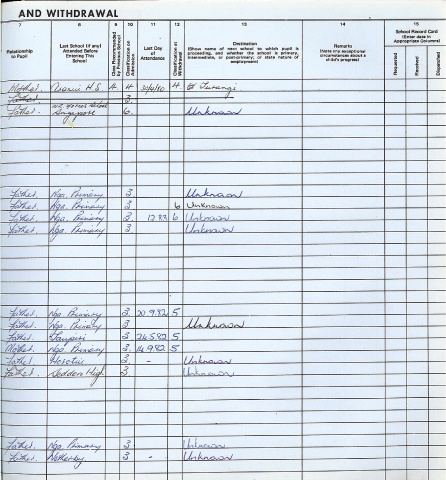 AND WITHDRAWAL
7 8 9 10 11 12 13 14 15
Relationship to Pupil
Last School (if any) Attended Before Entering This School
Class Recommended by Previous School
Classification on Admission
Last Day of Attendance
Classification at Withdrawal
Destination
(Show name of next school to which pupil is proceeding, and whether state or private, primary, intermediate, or post-primary; or state nature of employment)
Remarks
(Note any exceptional circumstances about a child's progress)
School Record Card
(Enter date in Appropriate Column)
Requested
Received
Dispatched
Mother. H.S. 4 4 30/9/80 4 Turangi
Father 3
Father. Singapore 6. Unknown
Father. Nga. Primary 3 Unknown
Father. Nga. Primary 3 6 Unknown
Father. Nga. Primary 3 12.83 6 Unknown
Father. Nga. Primary 3 Unknown
Father. Nga. Primary 3. 20.9.82 5
Father. Nga. Primary 3 Unknown
Father. Taupiri 3. 24.5.82 5
Mother. Nga. Primary 3 14.9.82 5
Father. Horotiu 3. - Unknown
Father. Seddon High 3 Unknown
Father. Nga. Primary 3 Unknown
Father. Netherby. 3 - Unknown